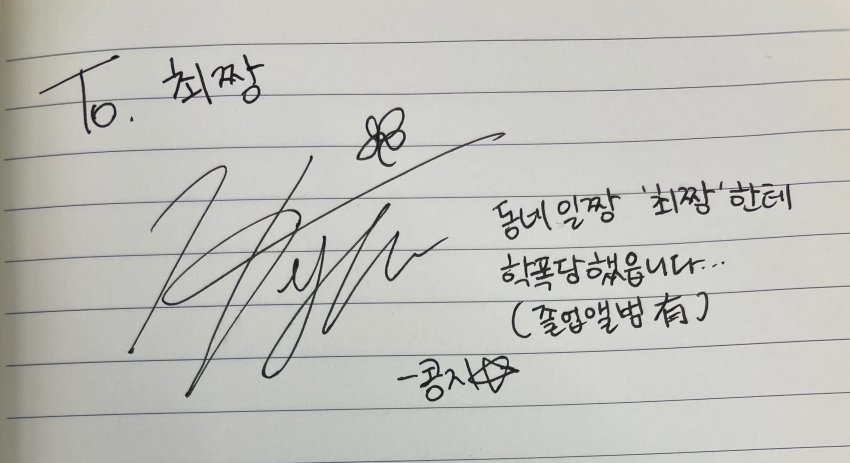 To. 최짱
동네 일짱 '최짱'한테
학폭당했읍니다...
(졸업앨범 有)
-콩지☆